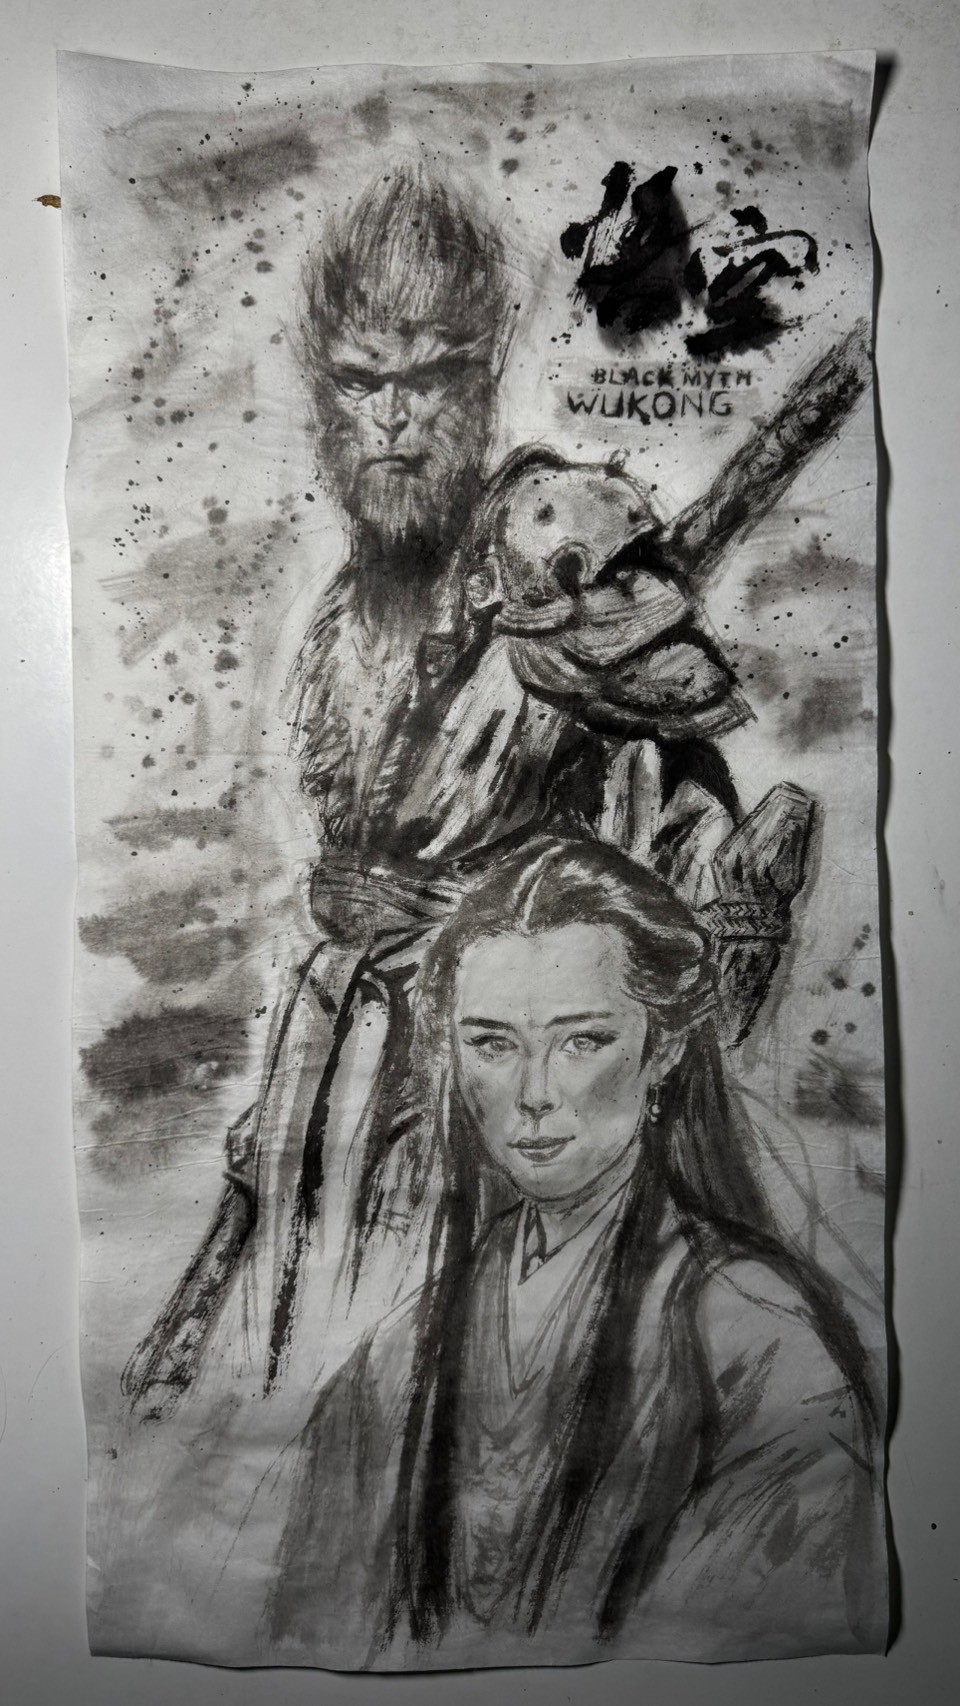 悟空
BLACK MYTH
WUKONG